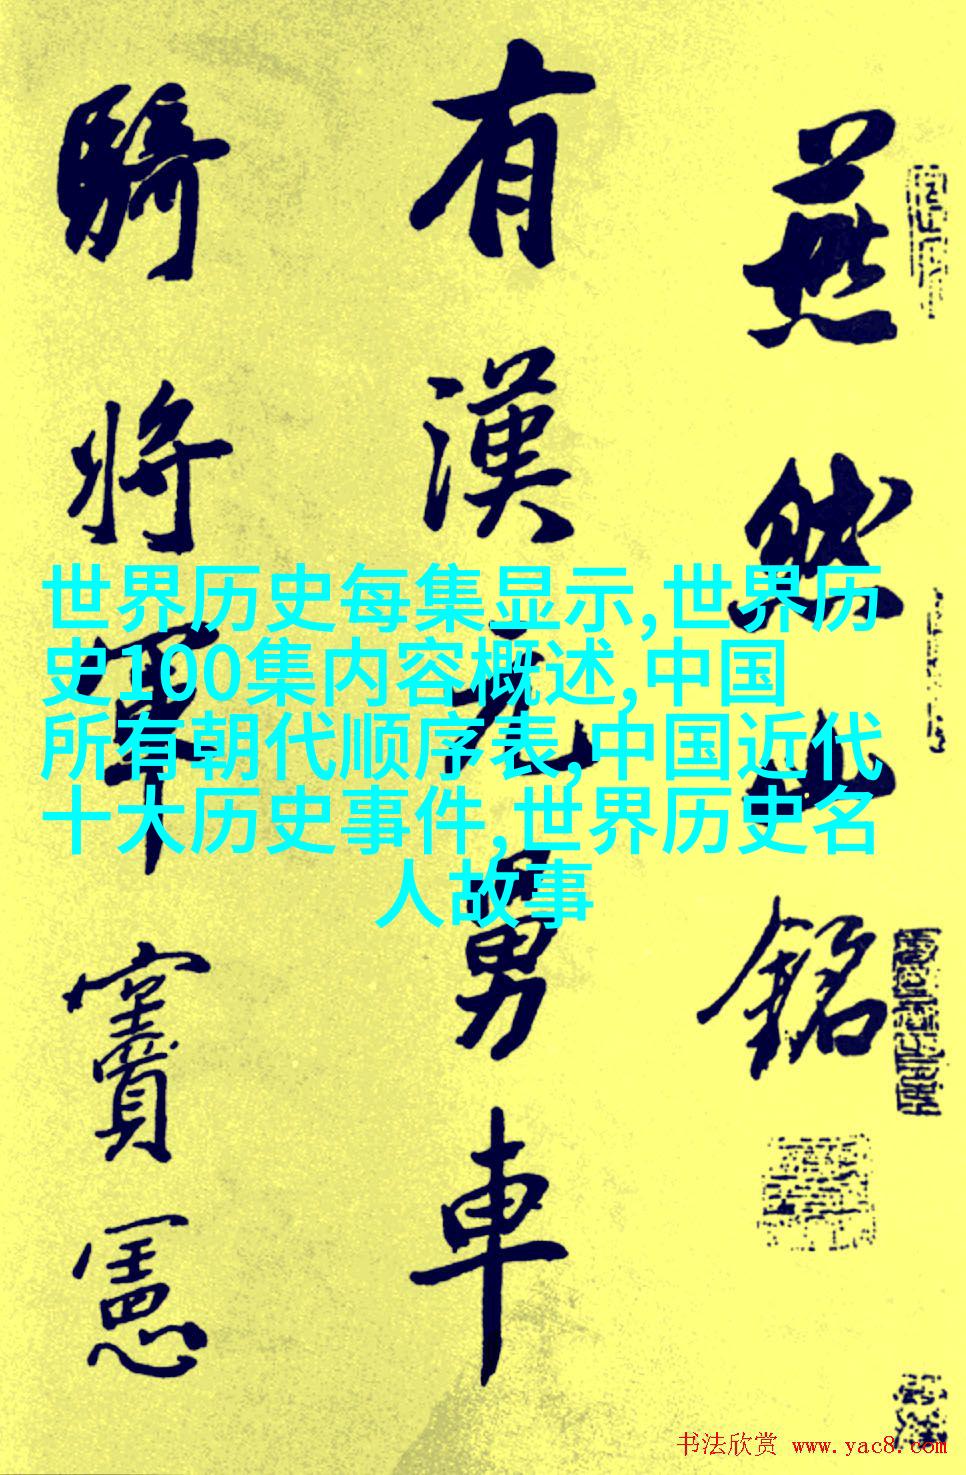 燕然山銘
有漢元舅車
騎將軍竇憲
世界历史每集显示,世界历
史100集内容概述,中国
所有朝代顺序表,中国近代
十大历史事件,世界历史名
人故事
书法欣赏 www.yac8.com